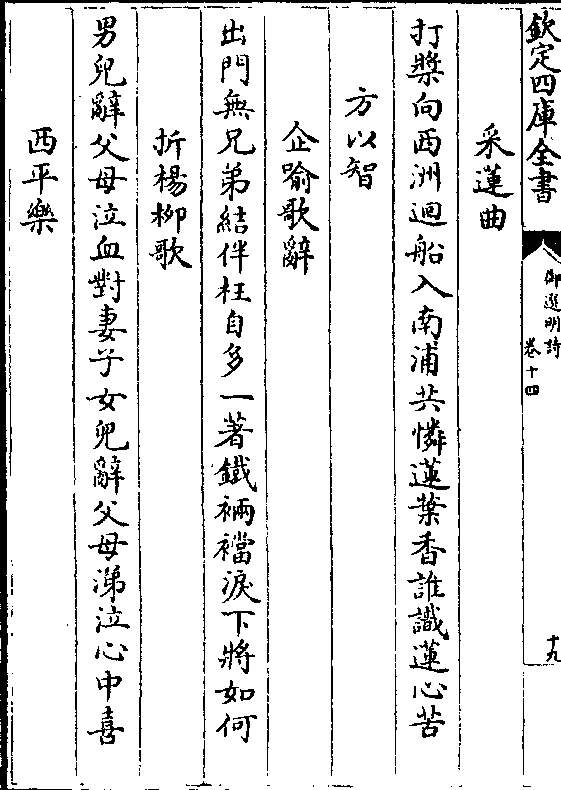 欽定四庫全書
御選明詩
卷十四
十九
采蓮曲
打槳向西洲迴船入南浦共憐蓮葉香誰識蓮心苦
方以智
企喻歌辭
出門無兄弟結伴枉自多一著鐵裲襠淚下將如何
折楊柳歌
男兒辭父母泣血對妻子女兒辭父母涕泣心中喜
西平樂